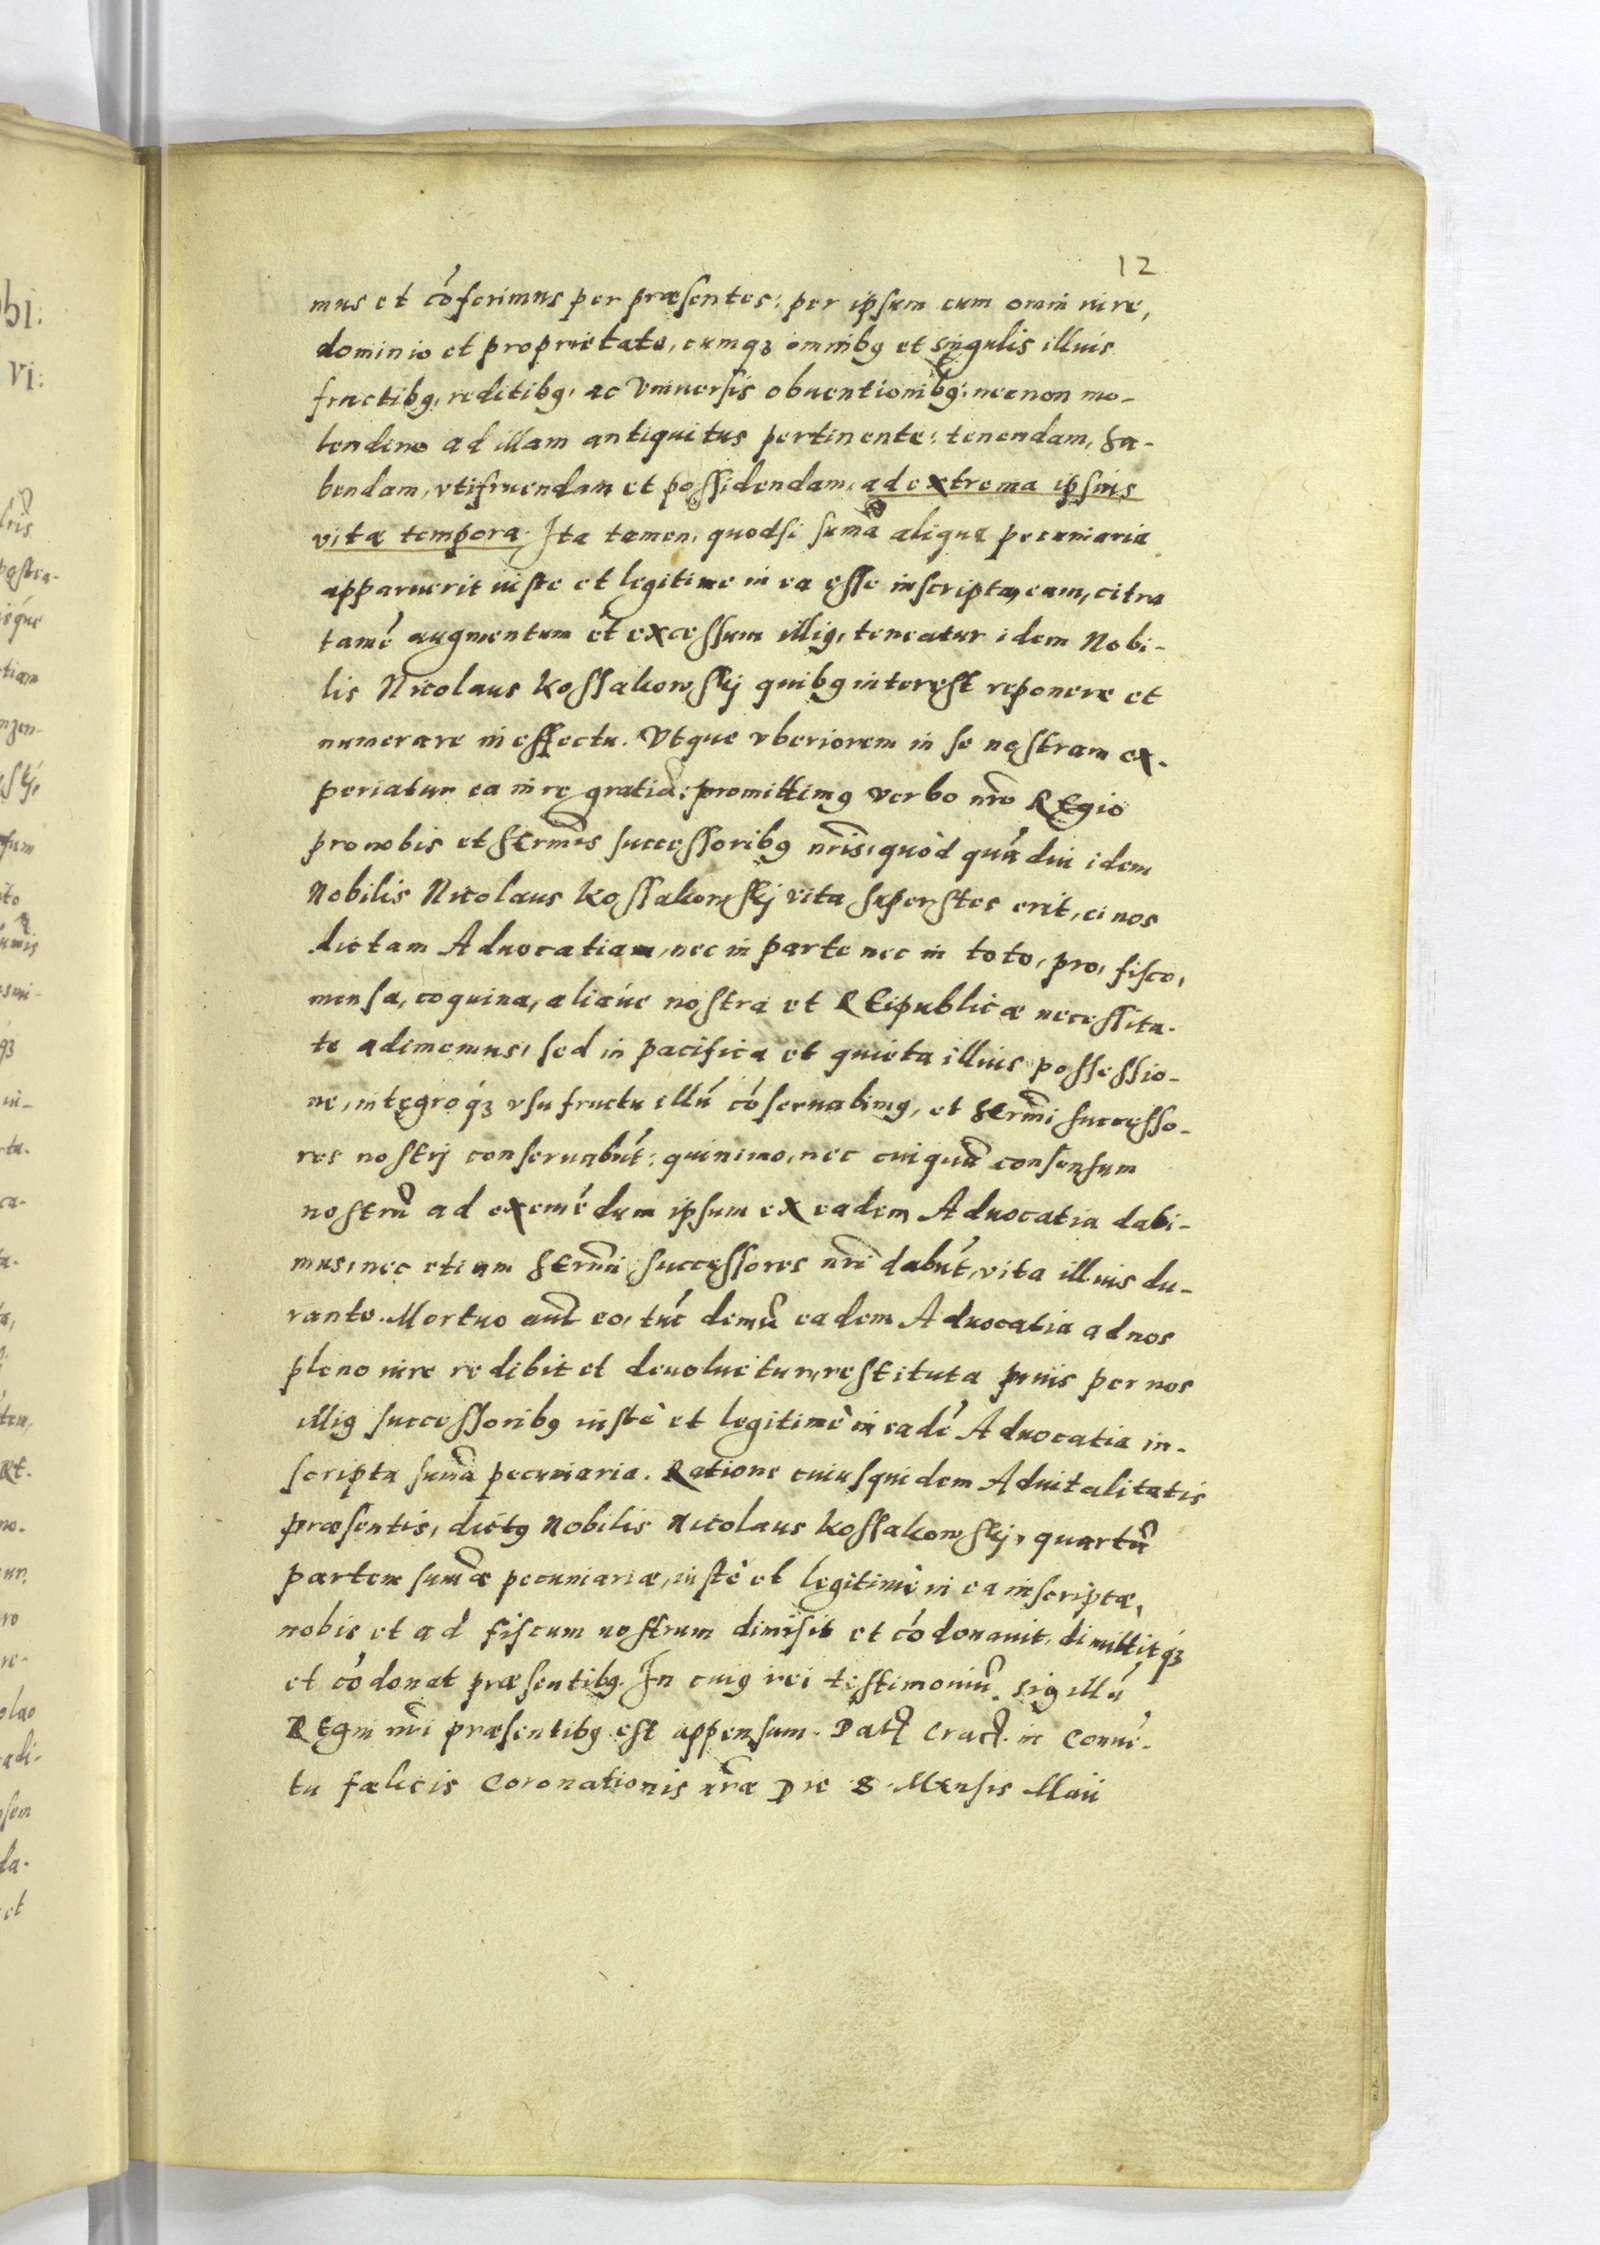 12
mus et cōferimus per præsentes: per ipsum cum omni iure,
dominio et proprietate, cumq3 omnibꝰ et singulis illius
fructibꝰ, reditibꝰ, ac Vniuersis obuentionibꝰ: necnon mo-
lendino ad illam antiquitus pertinente: tenendam, ha-
bendam, vtifruendam et possidendam, ad extrema ipsius
vitæ tempora. Ita tamen, quodsi sumã aliqua pecuniaria
apparuerit iuste et legitime in ea esse inscripta, eam, citra
tamē augmentum et excessum illiꝰ, teneatur idem Nobi-
lis Nicolaus Kossakowskij quibꝰ interest reponere et
numerare in effectu. Vtque vberiorem in se nostram ex-
periatur ea in re gratiã: promittimꝰ verbo nr̃o REgio
pro nobis et SErm̃is successoribꝰ nr̃is, quòd quādiu idem
Nobilis Nicolaus Kossakowskij vita superstes erit, ei nos
dictam Aduocatiam, nec in parte nec in toto, pro, fisco,
mensa, coquina, aliaúe nostra et REipublicæ necessita-
te adimemus, sed in pacifica et quieta illius possessio-
ne, integroq́3 vsufructu illū cōseruabimꝰ, et SErm̃i successo-
res nostrj conseruabūt: quinimo, nec cuiquã consensum
nostrũ ad eximēdum ipsum ex eadem Aduocatia dabi-
mus, nec etiam SErm̃i successores nr̃i dabūt, vita illius du-
rante. Mortuo aut̃ eo, tūc demũ eadem Aduocatia ad nos
pleno iure redibit et deuoluetur, restituta priùs per nos
illiꝰ successoribꝰ iustè et legitimè in eadē Aduocatia in-
scripta sum̃a pecuniaria. Ratione cuiusquidem Aduitalitatis
præsentis, dictꝰ Nobilis Nicolaus Kossakowskij, quartã
partem sum̃æ pecuniariæ, iustè et legitimè in ea inscriptæ,
nobis et ad fiscum nostrum dimisit et cōdonauit, dimittitq́3
et cōdonat præsentibꝰ. In cuiꝰ rei testimoniũ. sigillū
REgni nr̃i præsentibꝰ est appensum. Dat̃ Crac̃. in Conuē-
tu fælicis Coronationis nr̃æ Die 8 Mensis Maii